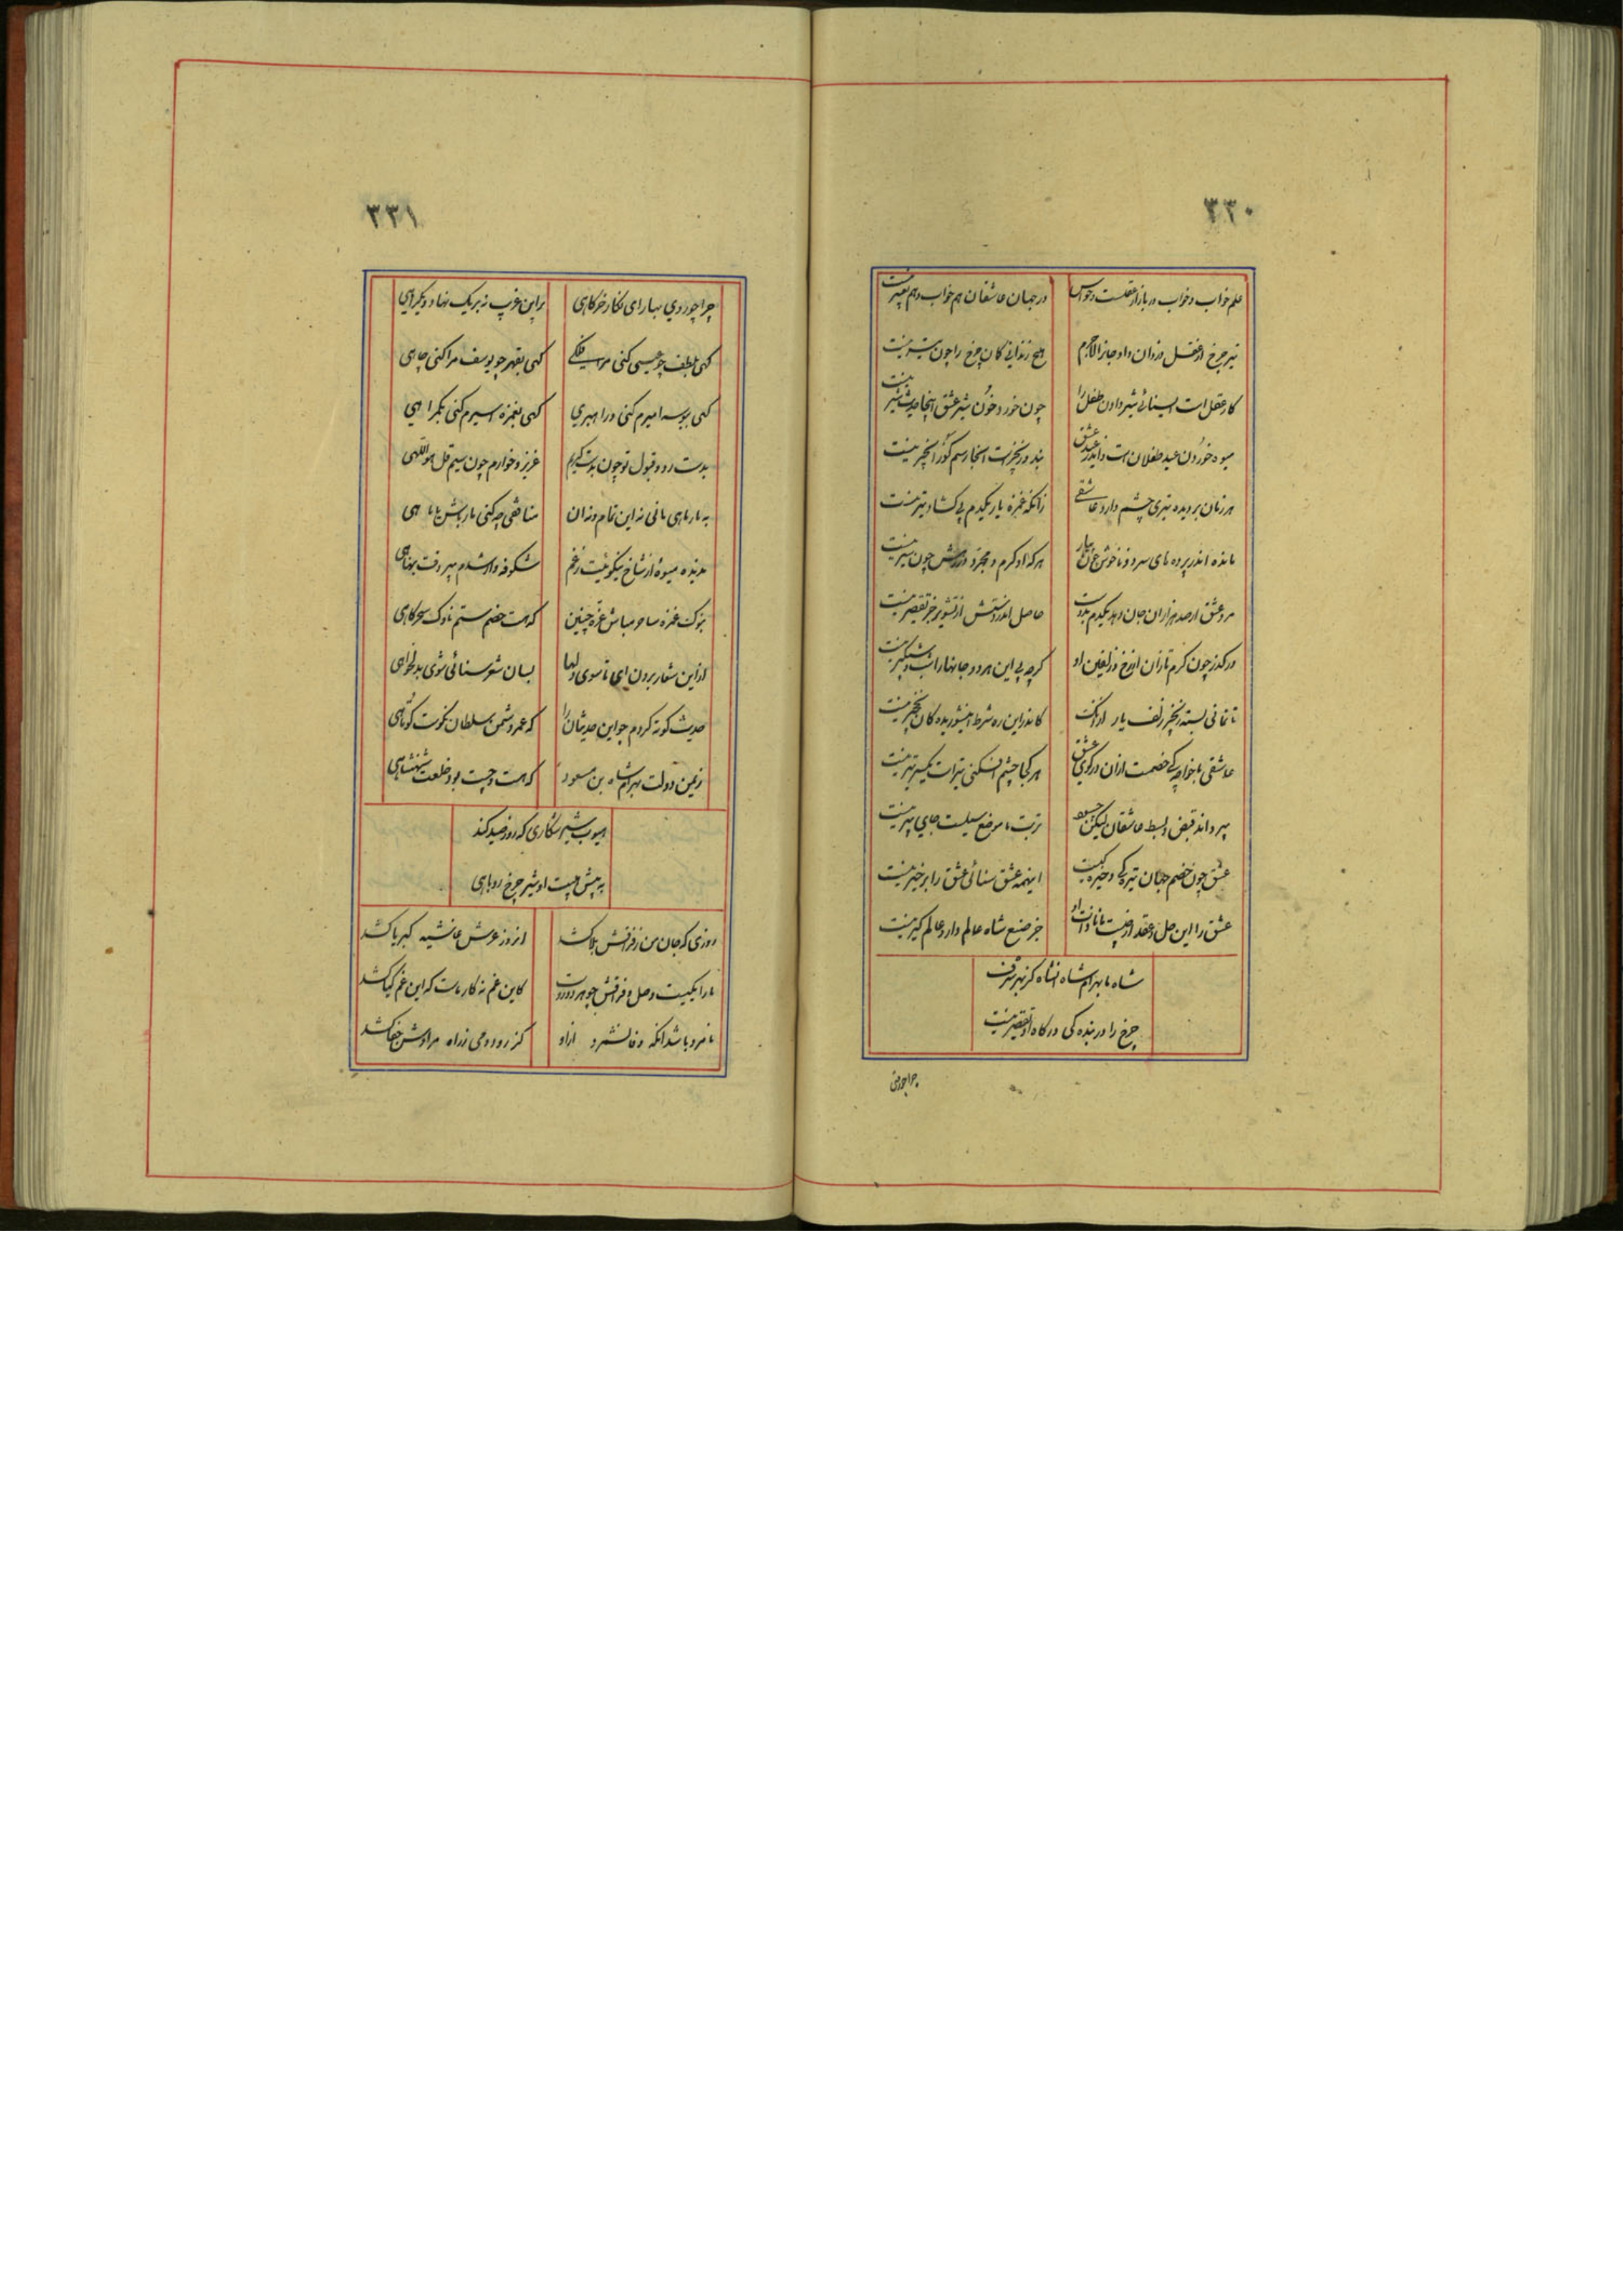 ۳۳۰
علم خواب و خواب در بازار عقلست و حواس در جهان عاشقان هم خواب و هم تعبیر نیست
تیر چرخ از عقل دزدان داد جانرا لاجرم هیچ زندانی کان چرخ را چون تیر نیست
کار عقل است ای سنائی شیر دادن طفل را چون خورد خون شیر عشق اینجا حدیث شیر نیست
میوه خوردن عید طفلان است و اندر عید عشق
هر زمان بر دیده تیری چشم دارد عاشقی زانکه غمزه یار یکدم بی گشاد تیر نیست
مانده اندر پرده های سرد و ناخوش چون پیاز هر که او گرم و مجرد در روش چون سیر نیست
مرد عشق ار صد هزاران جان دهد یکدم بدوست حاصل اندر دستش از تشویر جز تقصیر نیست
در گذر چون گرم تازان از رخ و زلفین او گرچه بی این هر دو جانها را شب و شبگیر نیست
تا نمانی بسته زنجیر زلف یار از آنک کاندراین ره شرط این شوریدگان زنجیر نیست
عاشقی با خواجگی خصمست ازان در کوی عشق هر کجا چشم افکنی تیر است یکسر تیر نیست
پیر داند قبض و بسط عاشقان لیکن چه سود تربت ما موضع سیلست جای پیر نیست
عشق چون خصم جهان تیرگی و خیرگیست اینهمه عشق سنائی عشق را بر خیر نیست
عشق را این حل و عقد از چیست جز صنع شاه عالم دار و عالم گیر نیست
شاه ما بهرامشاه انشاه کز بهر شرف
چرخ را در بندگی درگاه او تقصیر نیست
چرا چو روی
۳۳۱
چرا چو روی بهار ای نگار خرگاهی براین غریب نه بر یک نهاد و یکراهی
گهی بلطف چو عیسی کنی مرا فلکی گهی بقهر چو یوسف مرا کنی چاهی
گهی ببوسه امیرم کنی در راهبری گهی بغمزه اسیرم کنی بگمراهی
بدست رد و قبول تو چون بدست کریم عزیز و خوارم چون سیم قل هو اللهی
به مار ماهی مانی نه این تمام و نه ان منافقی چه کنی مار باش یا ماهی
بدیده میوهٔ از شاخ نیکوئیت رخم شکوفه وار شدم پیر وقت برنائی
بنوک غمزه ساحر مباش غره چنین که هست خصم ستم ناوک سحرگاهی
ازین شعار برون ای تا سوی دلها بسان شعر سنائی شوی بدلخواهی
حدیث کوته کردم چو این حدیثان را که عمر دشمن سلطان نکوست کوتاهی
زمین دولت بهرامشاه بن مسعود که هست و چست بود خلعت شهنشاهی
همیون شیر شکاری که روز صید کند
به پیش هیبت او شیر چرخ روباهی
روزی که جان من ز فراقش بلا کشد انروز عرش غاشیه کبریا کشد
ما را یکیست وصل و فراقش چو هر دو زوست کاین غم نه کار ماست که این غم گیا کشد
نامرد باشد انکه وفا نشمرد ازو کز رود و می زراه مراوش جفا کشد